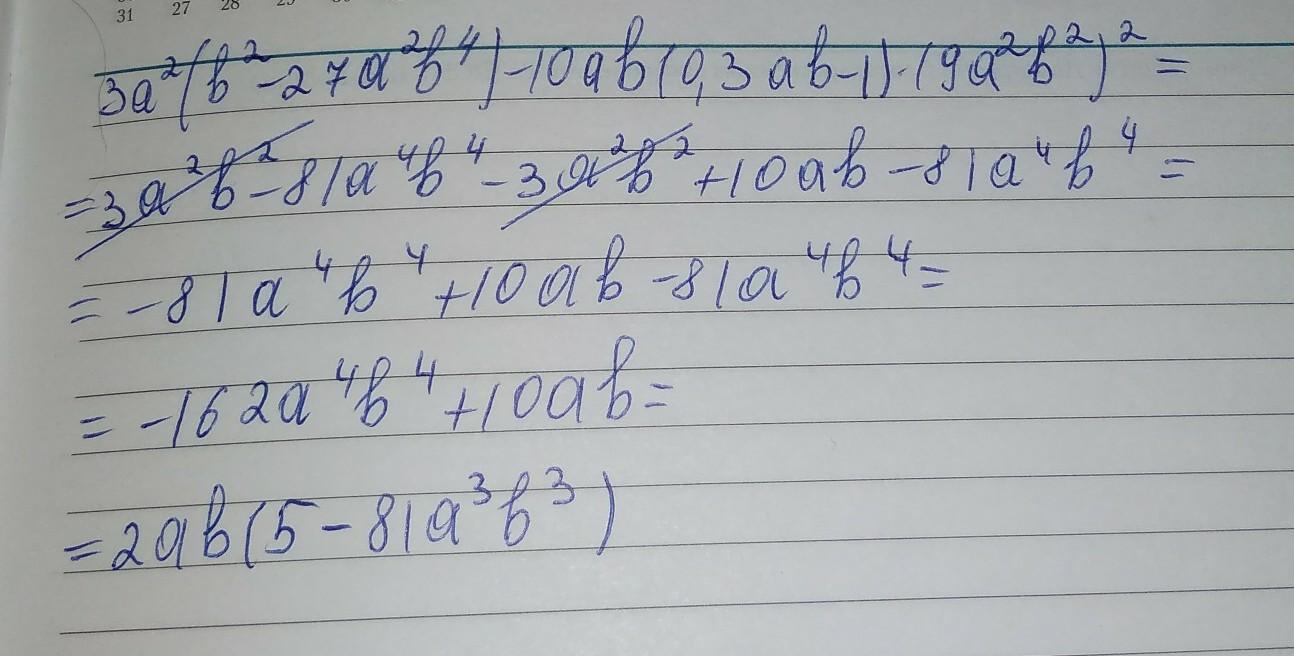 31 27 28
3a²(b²-27a²b⁴)-10ab(0,3ab-1)-(9a²b²)²=
=3a²b²-81a⁴b⁴-3a²b²+10ab-81a⁴b⁴=
=-81a⁴b⁴+10ab-81a⁴b⁴=
=-162a⁴b⁴+10ab=
=2ab(5-81a³b³)